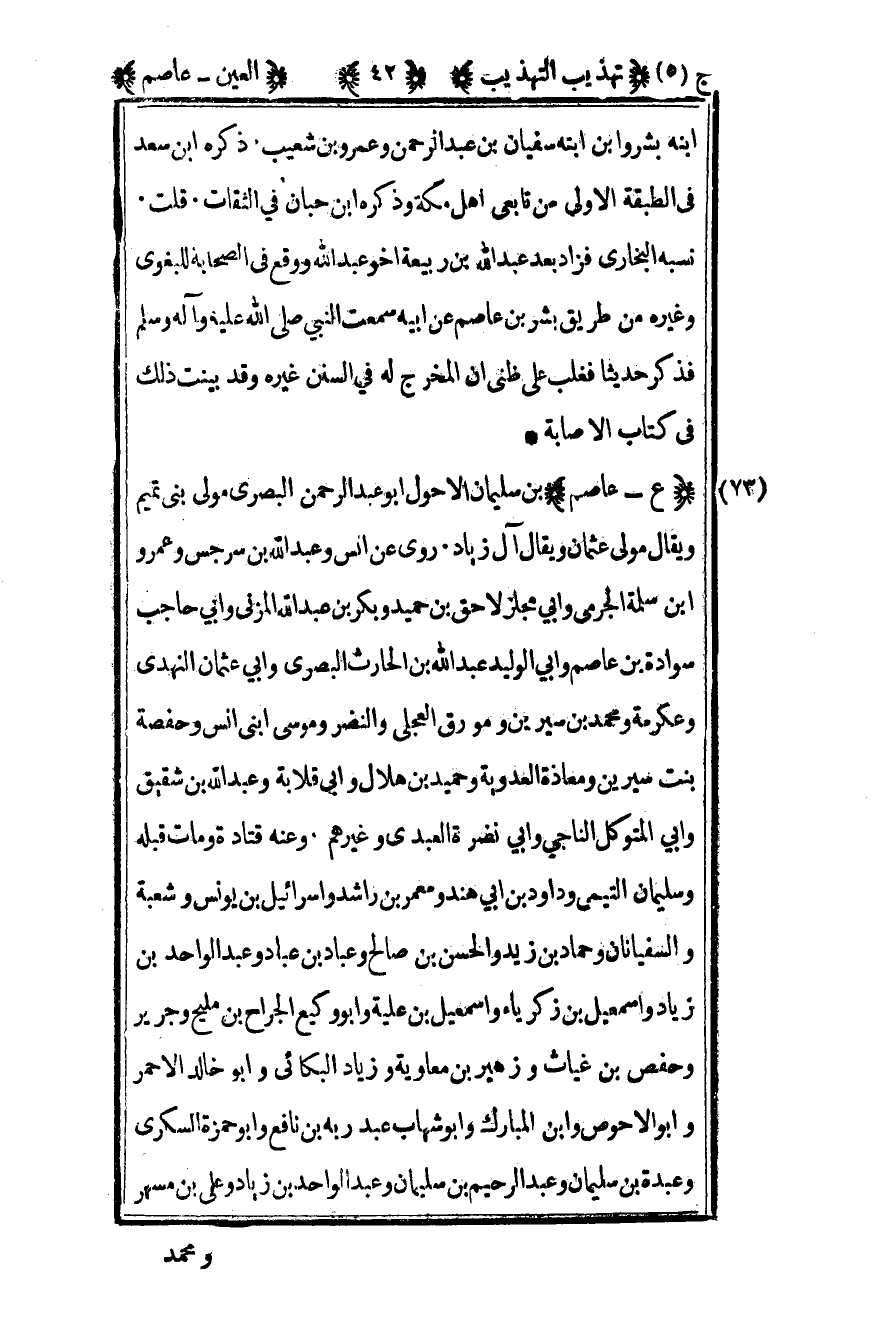 ج (٥) ﴿ تهذيب التهذيب ﴾ ﴿ ٤٢ ﴾ ﴿ العين ــ عاصم ﴾
ابنه بشروا بن ابنه سفيان بن عبد الرحمن وعمرو بن شعيب · ذكره ابن سعد
فى الطبقة الاولى من تابعى اهل مكة وذكره ابن حبان في الثقات · قلت ·
نسبه البخارى فزاد بعد عبد الله بن ربيعة اخو عبد الله ووقع فى الصحابة للبغوى
وغيره من طريق بشر بن عاصم عن ابيه سمعت النبي صلى الله عليه وآله وسلم
فذكر حديثا فغلب على ظنى ان المخرج له في السنن غيره وقد بينت ذلك
فى كتاب الاصابة *
(٧٣) ﴿ ع ــ عاصم ﴾ بن سليمان الاحول ابو عبد الرحمن البصرى مولى بنى تميم
ويقال مولى عثمان ويقال آل زياد · روى عن انس وعبد الله بن سرجس وعمرو
ابن سلمة الجرمى وابي مجلز لاحق بن حميد وبكر بن عبد الله المزنى وابي حاجب
سوادة بن عاصم وابي الوليد عبد الله بن الحارث البصرى وابي عثمان النهدى
وعكرمة ومحمد بن سيرين ومورق العجلى والنضر وموسى ابنى انس وحفصة
بنت سيرين ومعاذة العدوية وحميد بن هلال وابي قلابة وعبد الله بن شقيق
وابي المتوكل الناجي وابي نضرة العبدى وغيرهم · وعنه قتادة ومات قبله
وسليمان التيمى وداود بن ابي هند ومعمر بن راشد واسرائيل بن يونس وشعبة
والسفيانان وحماد بن زيد والحسن بن صالح وعباد بن عباد وعبد الواحد بن
زياد واسمعيل بن زكرياء واسمعيل بن علية وابو وكيع الجراح بن مليح وجرير
وحفص بن غياث وزهير بن معاوية وزياد البكائى وابو خالد الاحمر
وابو الاحوص وابن المبارك وابو شهاب عبد ربه بن نافع وابو حمزة السكرى
وعبدة بن سليمان وعبد الرحيم بن سليمان وعبد الواحد بن زياد وعلى بن مسهر
ومحمد